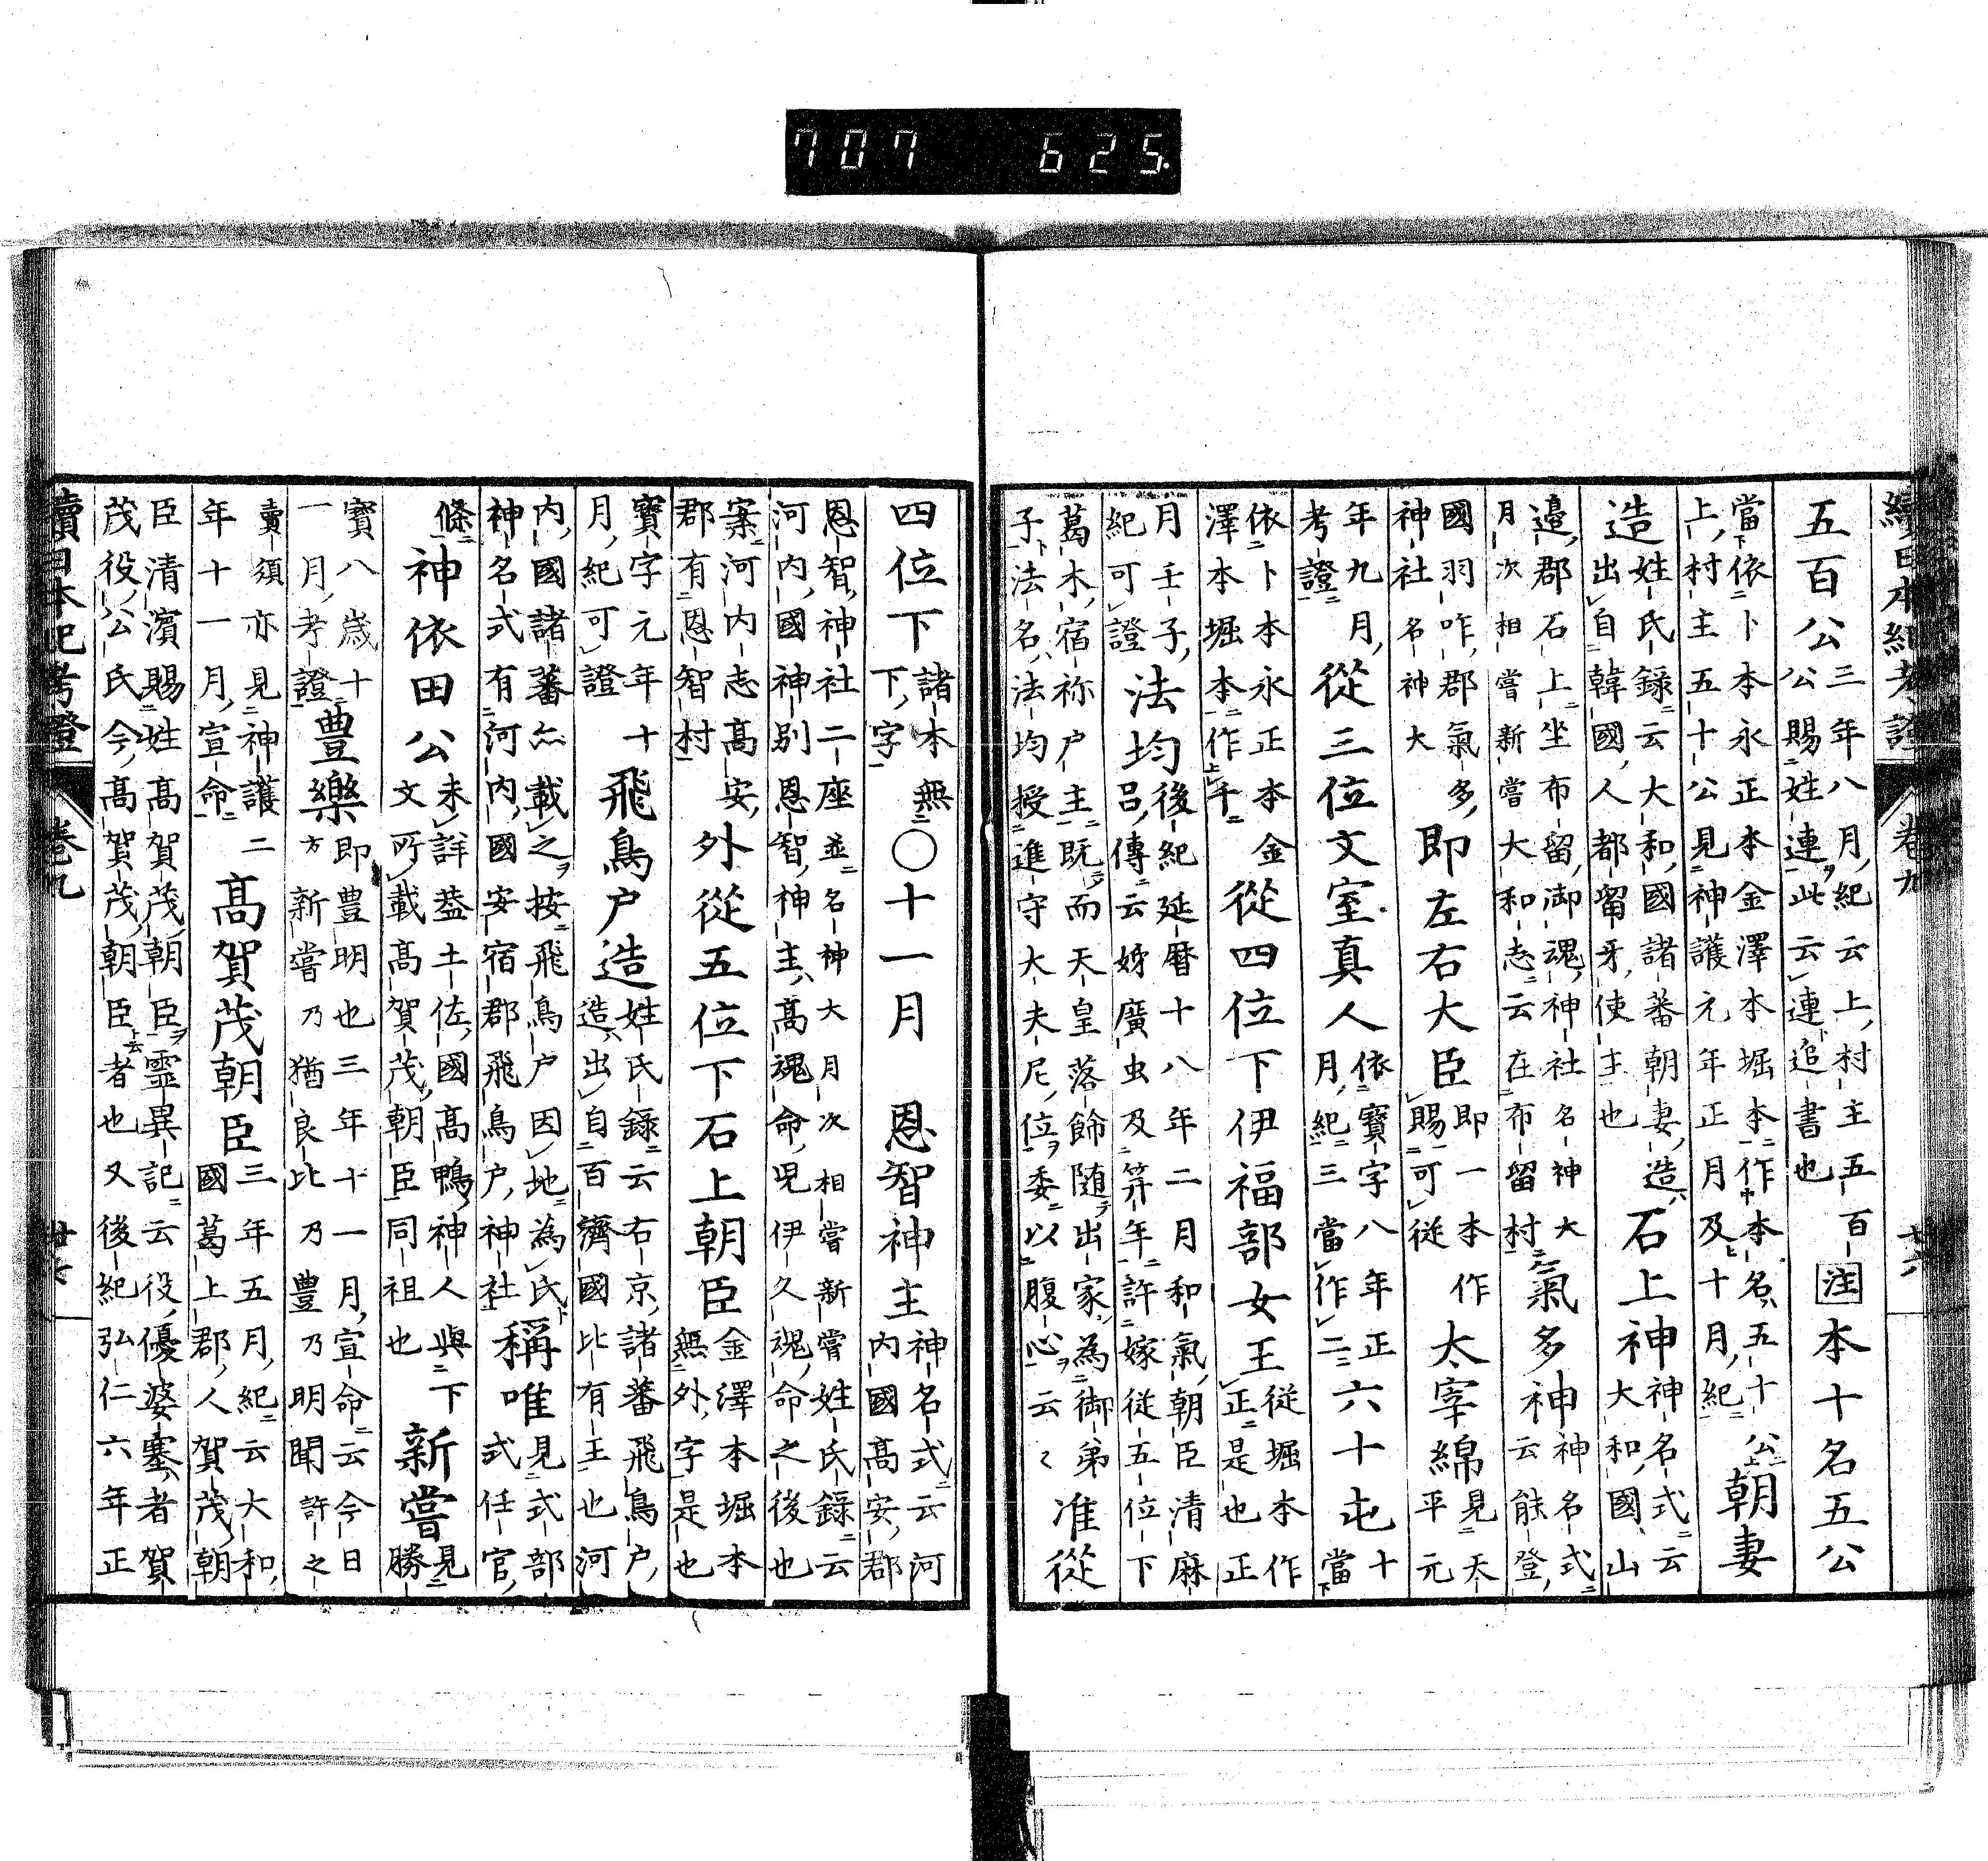 707 625
續日本紀考證 卷九
五百公三年八月紀云上村主五百
公賜姓連此云連追書也注本十名五公
當依卜本永正本金澤本堀本作本名五十公
上村主五十公見神護元年正月及十月紀朝妻
造姓氏錄云大和國諸蕃朝妻造
出自韓國人都留牙使主也石上神神名式云
大和國山
邉郡石上坐布留御魂神社名神大
月次相嘗新嘗大和志云在布留村氣多神神名式
云能登
國羽咋郡氣多
神社名神大即左右大臣即一本作
賜可従太宰綿見天
平元
年九月
考證從三位文室真人依寶字八年正
月紀三當作二六十屯十
當
依卜本永正本金
澤本堀本作千從四位下伊福部女王従堀本作
正是也正
月壬子
紀可證法均後紀延暦十八年二月和氣朝臣清麻
呂傳云姉廣虫及笄年許嫁従五位下
葛木宿祢戸主既而天皇落餝随出家為御弟
子法名法均授進守大夫尼位委以腹心云〻准從
四位下諸本無
下字〇十一月 恩智神主神名式云河
内國高安郡
恩智神社二座並名神大月次相嘗新嘗姓氏錄云
河内國神別恩智神主高魂命児伊久魂命之後也
案河内志高安
郡有恩智村外從五位下石上朝臣金澤本堀本
無外字是也
寶字元年十
月紀可證飛鳥戸造姓氏録云右京諸蕃飛鳥戸
造出自百濟國比有王也河
内國諸蕃亦載之按飛鳥戸因地為氏
神名式有河内國安宿郡飛鳥戸神社稱唯見式部
式任官
條神依田公未詳葢土佐國高鴨神人與下
文所載高賀茂朝臣同祖也新嘗見
勝
寳八歳十
一月考證豊樂即豊明也三年十一月宣命云今日
方新嘗乃猶良比乃豊乃明聞許之
賣須亦見神護二
年十一月宣命高賀茂朝臣三年五月紀云大和
國葛上郡人賀茂朝
臣清濱賜姓高賀茂朝臣霊異記云役優婆塞者賀
茂役公氏今高賀茂朝臣者也又後紀弘仁六年正
續日本紀考證 卷九